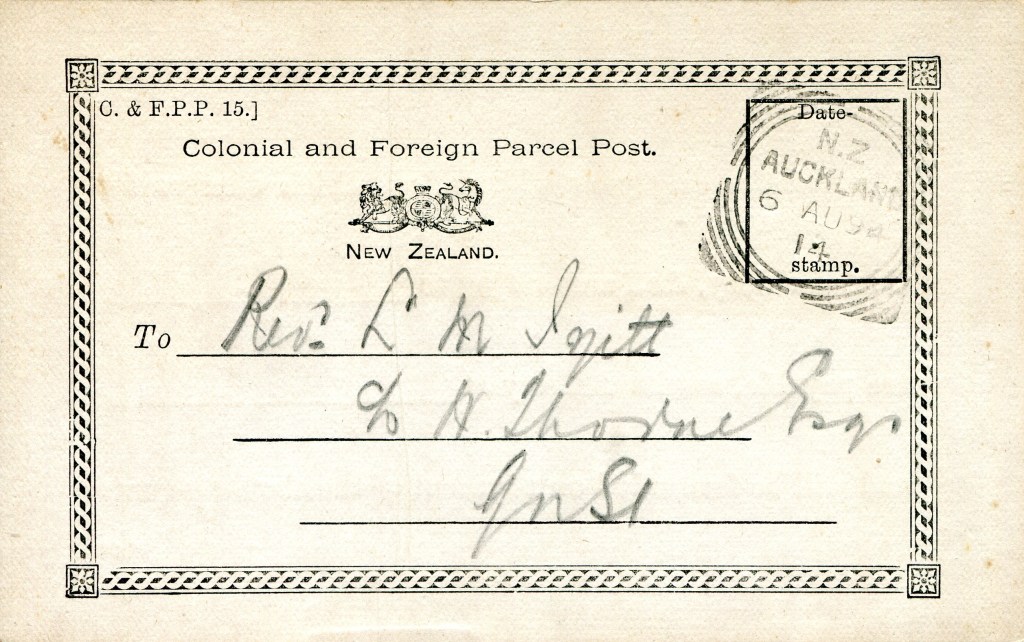 C. & F.P.P. 15.]
Colonial and Foreign Parcel Post.
NEW ZEALAND.
Date-
N.Z
AUCKLAND
6 AU 94
14
stamp.
To Revd. L M Isitt
c/o H. Thorne Esqr
Qn St